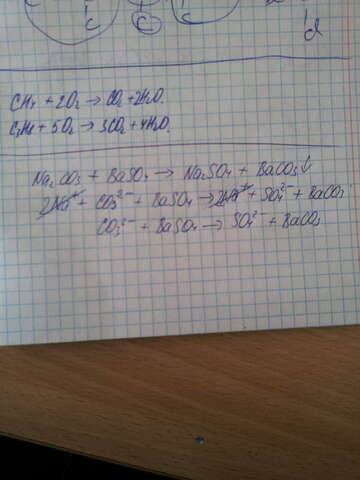 C C C
Cl
CH₄ + 2O₂ → CO₂ + 2H₂O.
C₃H₈ + 5O₂ → 3CO₂ + 4H₂O.
Na₂CO₃ + BaSO₄ → Na₂SO₄ + BaCO₃↓
2Na⁺ + CO₃²⁻ + BaSO₄ → 2Na⁺ + SO₄²⁻ + BaCO₃
CO₃²⁻ + BaSO₄ → SO₄²⁻ + BaCO₃